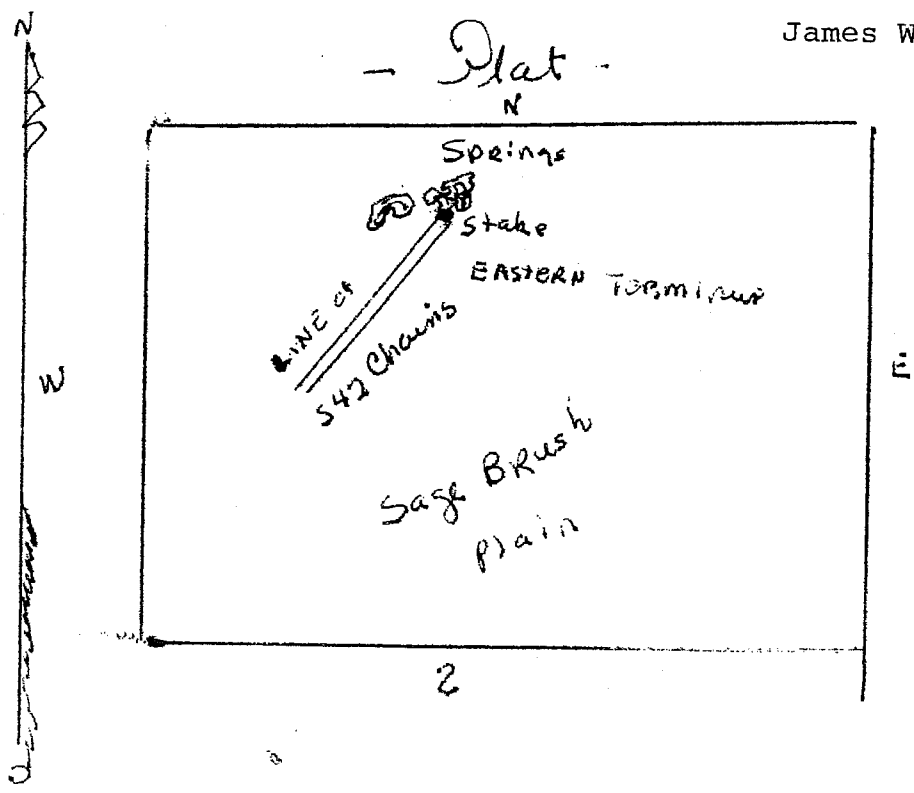 N
James W
- Plat -
N
Springs
Stake
EASTERN Terminus
LINE of
542 Chains
W
E
Sage BRush
plain
S
S